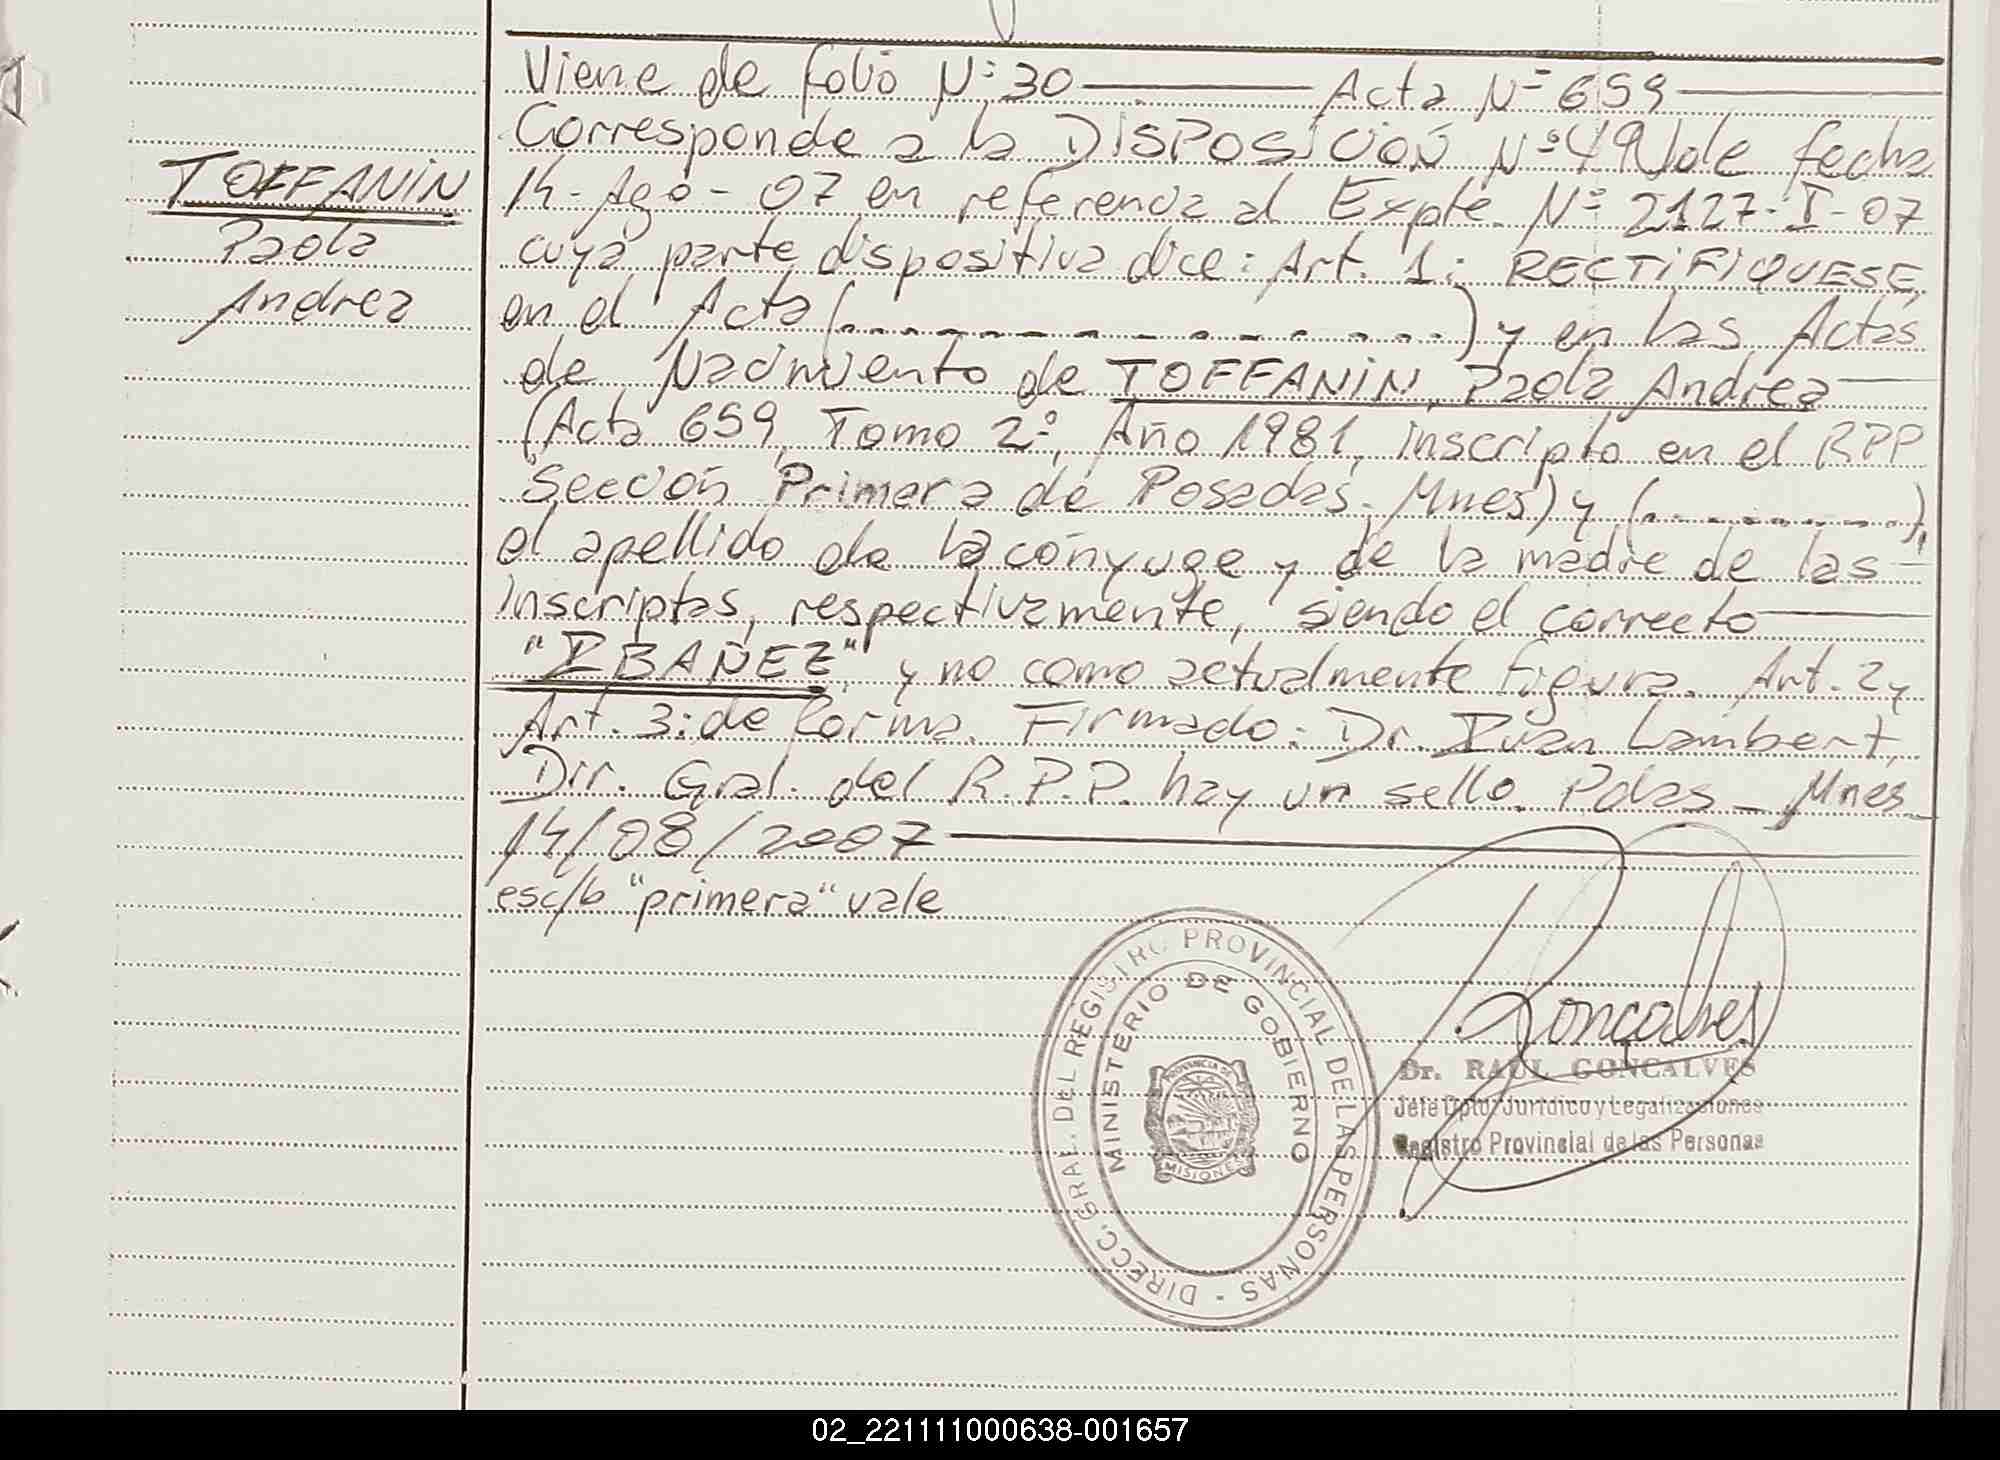 Viene de folio Nº 30 ——— Acta Nº 659 ———
Corresponde a la DISPOSICIÓN Nº 491 de fecha
TOFFANIN
14-Ago-07 en referencia al Expte. Nº 2127-I-07
Paola
cuya parte dispositiva dice: Art. 1: RECTIFIQUESE,
Andrea
en el Acta (. . . . . . . . . . . . . .) y en las Actas
de Nacimiento de TOFFANIN, Paola Andrea ——
(Acta 659, Tomo 2º, Año 1981, inscripto en el RPP
Sección Primera de Posadas. Mnes) y (. . . . . . . .),
el apellido de la cónyuge y de la madre de las —
Inscriptas, respectivamente, siendo el correcto ——
"IBAÑEZ", y no como actualmente figura. Art. 2 y
Art. 3: de forma. Firmado: Dr. Ivan Lambert,
Dir. Gral. del R.P.P. hay un sello. Pdas - Mnes
14/08/2007 ———
esc/b "primera" vale
DIRECC. GRAL. DEL REGISTRO PROVINCIAL DE LAS PERSONAS -
MINISTERIO DE GOBIERNO
PROVINCIA DE
MISIONES
Gonçalves
Dr. RAUL GONCALVES
Jefe Dpto. Jurídico y Legalizaciones
Registro Provincial de las Personas
02_221111000638-001657